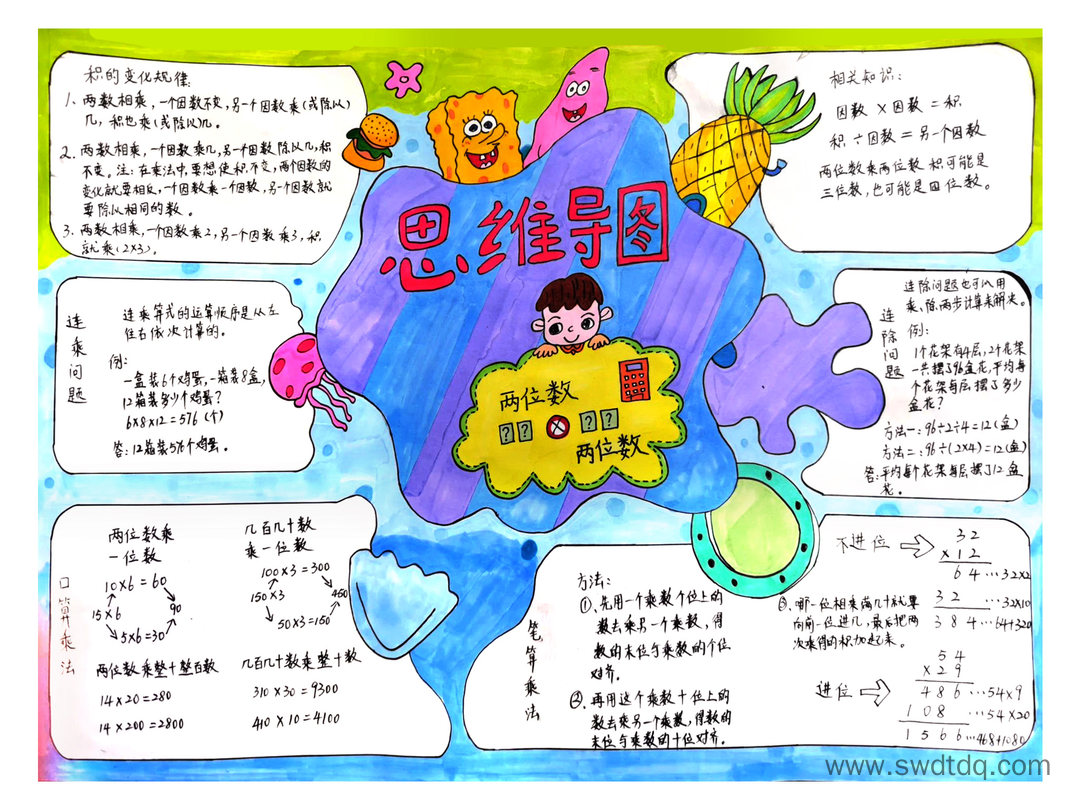 积的变化规律:
1、两数相乘，一个因数不变，另一个因数乘(或除以)
几，积也乘(或除以)几。
2、两数相乘，一个因数乘几，另一个因数除以几，积
不变。注:在乘法中，要想使积不变，两个因数的
变化就要相反，一个因数乘一个数，另一个因数就
要除以相同的数。
3、两数相乘，一个因数乘2，另一个因数乘3，积
就乘(2×3)。
思维导图
两位数
?? × ??
两位数
相关知识:
因数×因数=积
积÷因数=另一个因数
两位数乘两位数积可能是
三位数，也可能是四位数。
连乘问题
连乘算式的运算顺序是从左
往右依次计算的。
例:
一盒装6个鸡蛋，一箱装8盒，
12箱装多少个鸡蛋?
6×8×12=576(个)
答:12箱装576个鸡蛋。
连除问题
连除问题也可以用
乘、除两步计算来解决。
例:
1个花架有4层，2个花架
一共摆了96盆花，平均每
个花架每层摆了多少
盆花?
方法一:96÷2÷4=12(盆)
方法二:96÷(2×4)=12(盆)
答:平均每个花架每层摆了12盆
花。
口算乘法
两位数乘
一位数
10×6=60
15×6
90
5×6=30
几百几十数
乘一位数
100×3=300
150×3
450
50×3=150
两位数乘整十整百数
14×20=280
14×200=2800
几百几十数乘整十数
310×30=9300
410×10=4100
笔算乘法
方法:
①、先用一个乘数个位上的
数去乘另一个乘数，得
数的末位与乘数的个位
对齐。
②、再用这个乘数十位上的
数去乘另一个乘数，得数的
末位与乘数的十位对齐。
③、哪一位相乘满几十就要
向前一位进几，最后把两
次乘得的积加起来。
不进位
32
×12
64…32×2
32 …32×10
384…64+320
进位
54
×29
486…54×9
108 …54×20
1566…468+1080
www.swdtdq.com